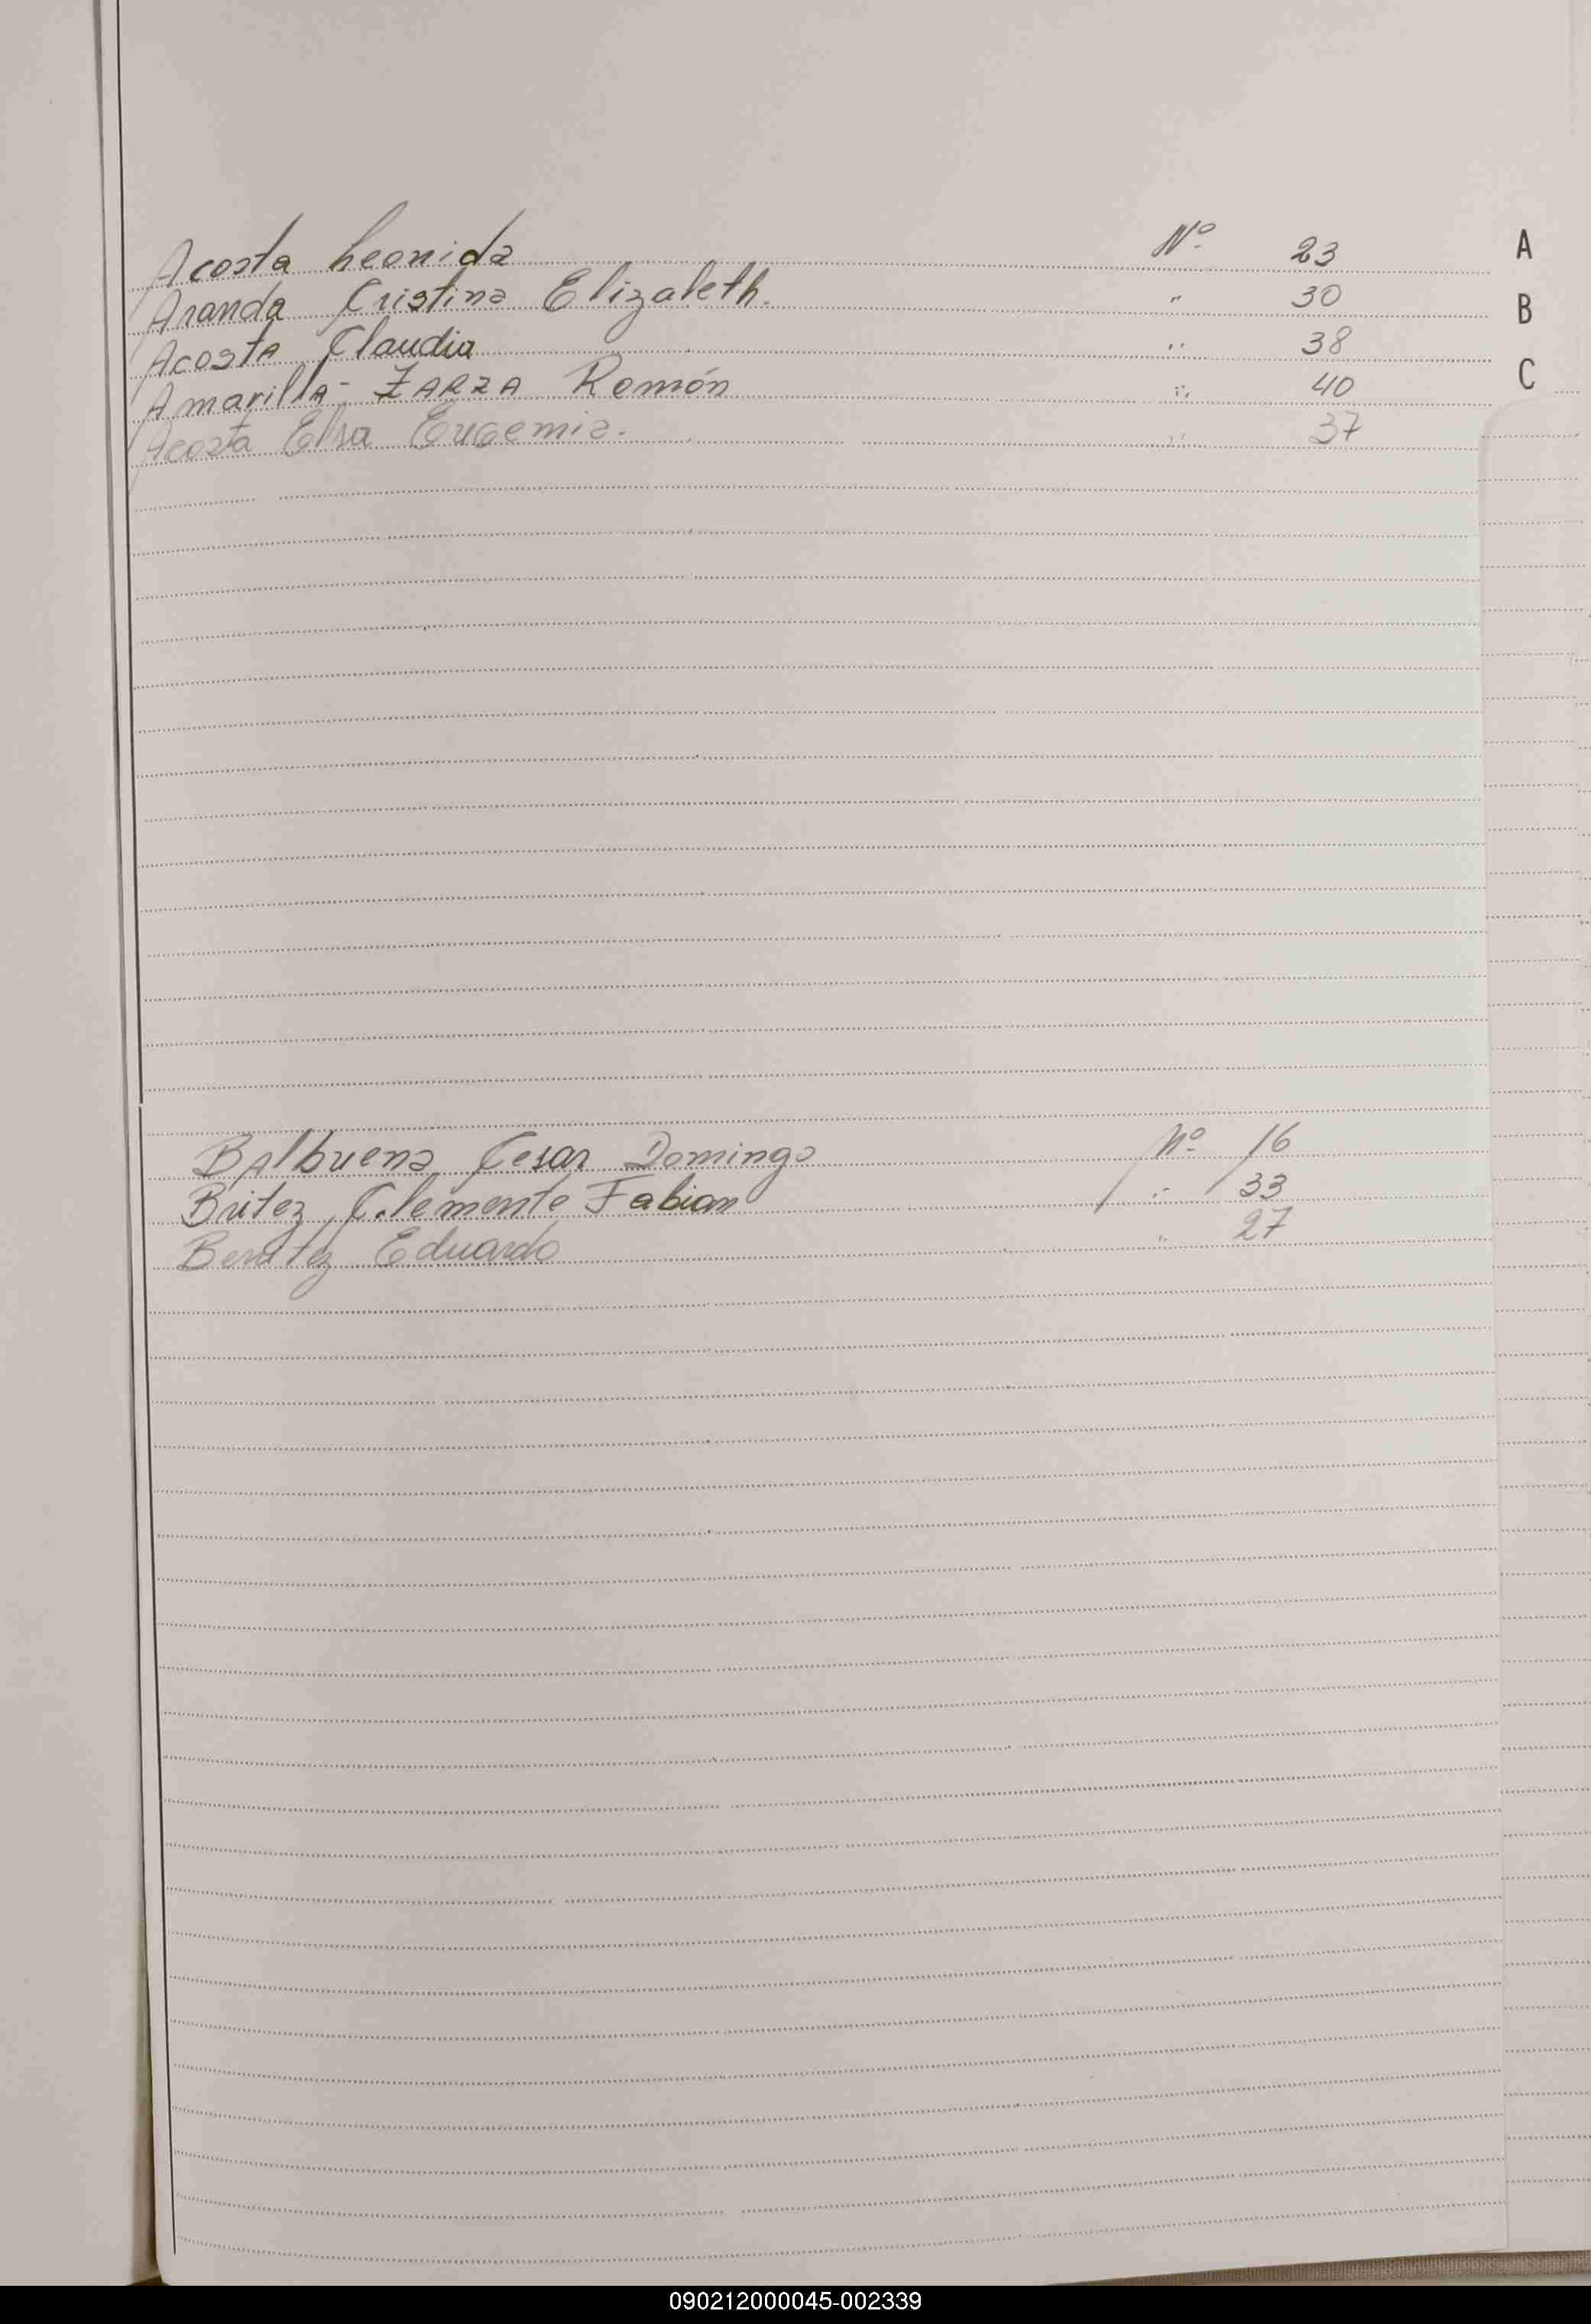 Acosta Leonida Nº 23 A
Aranda Cristina Elizabeth. " 30 B
Acosta Claudia " 38
Amarilla - Zarza Ramón " 40 C
Acosta Elsa Eugemia. " 37
Balbuena Cesar Domingo Nº 16
Britez, Clemente Fabian " 33
Benitez Eduardo " 27
090212000045-002339